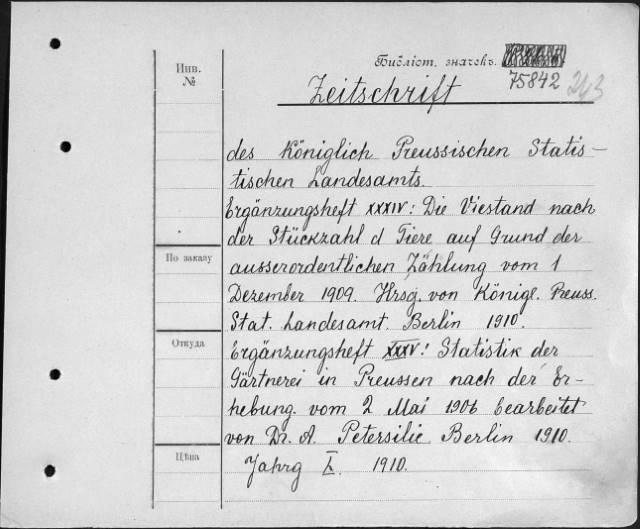 Инв.
№
Библіот. значекъ.
75842 243
Zeitschrift
des Königlich Preussischen Statis-
tischen Landesamts.
Ergänzungsheft XXXIV: Die Viestand nach
der Stückzahl d Tiere auf Grund der
По заказу
ausserordentlichen Zählung vom 1
Dezember 1909. Hrsg. von Königl. Preuss.
Stat. Landesamt. Berlin 1910.
Откуда
Ergänzungsheft XXXV: Statistik der
Gärtnerei in Preussen nach der Er-
hebung vom 2 Mai 1906 bearbeitet
von Dr. A. Petersilie Berlin 1910.
Цѣна
Jahrg L. 1910.